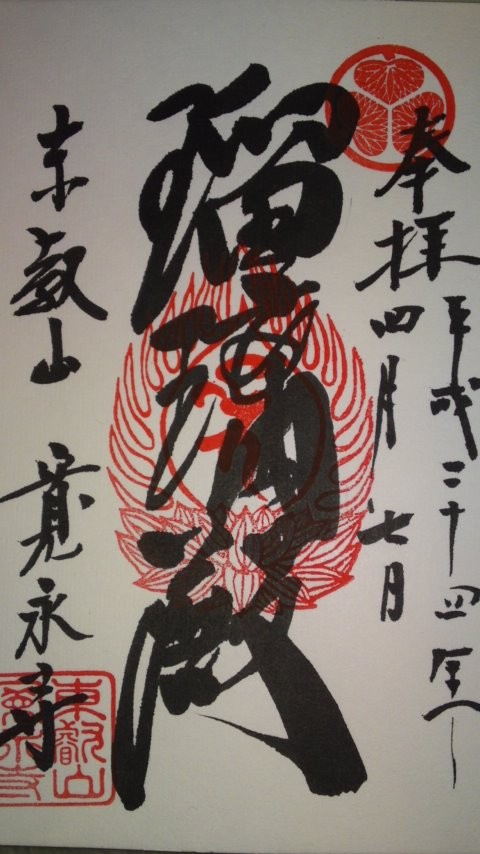 奉拝
平成二十四年
四月七日
瑠璃殿
東叡山 寛永寺
東叡山
寛永寺